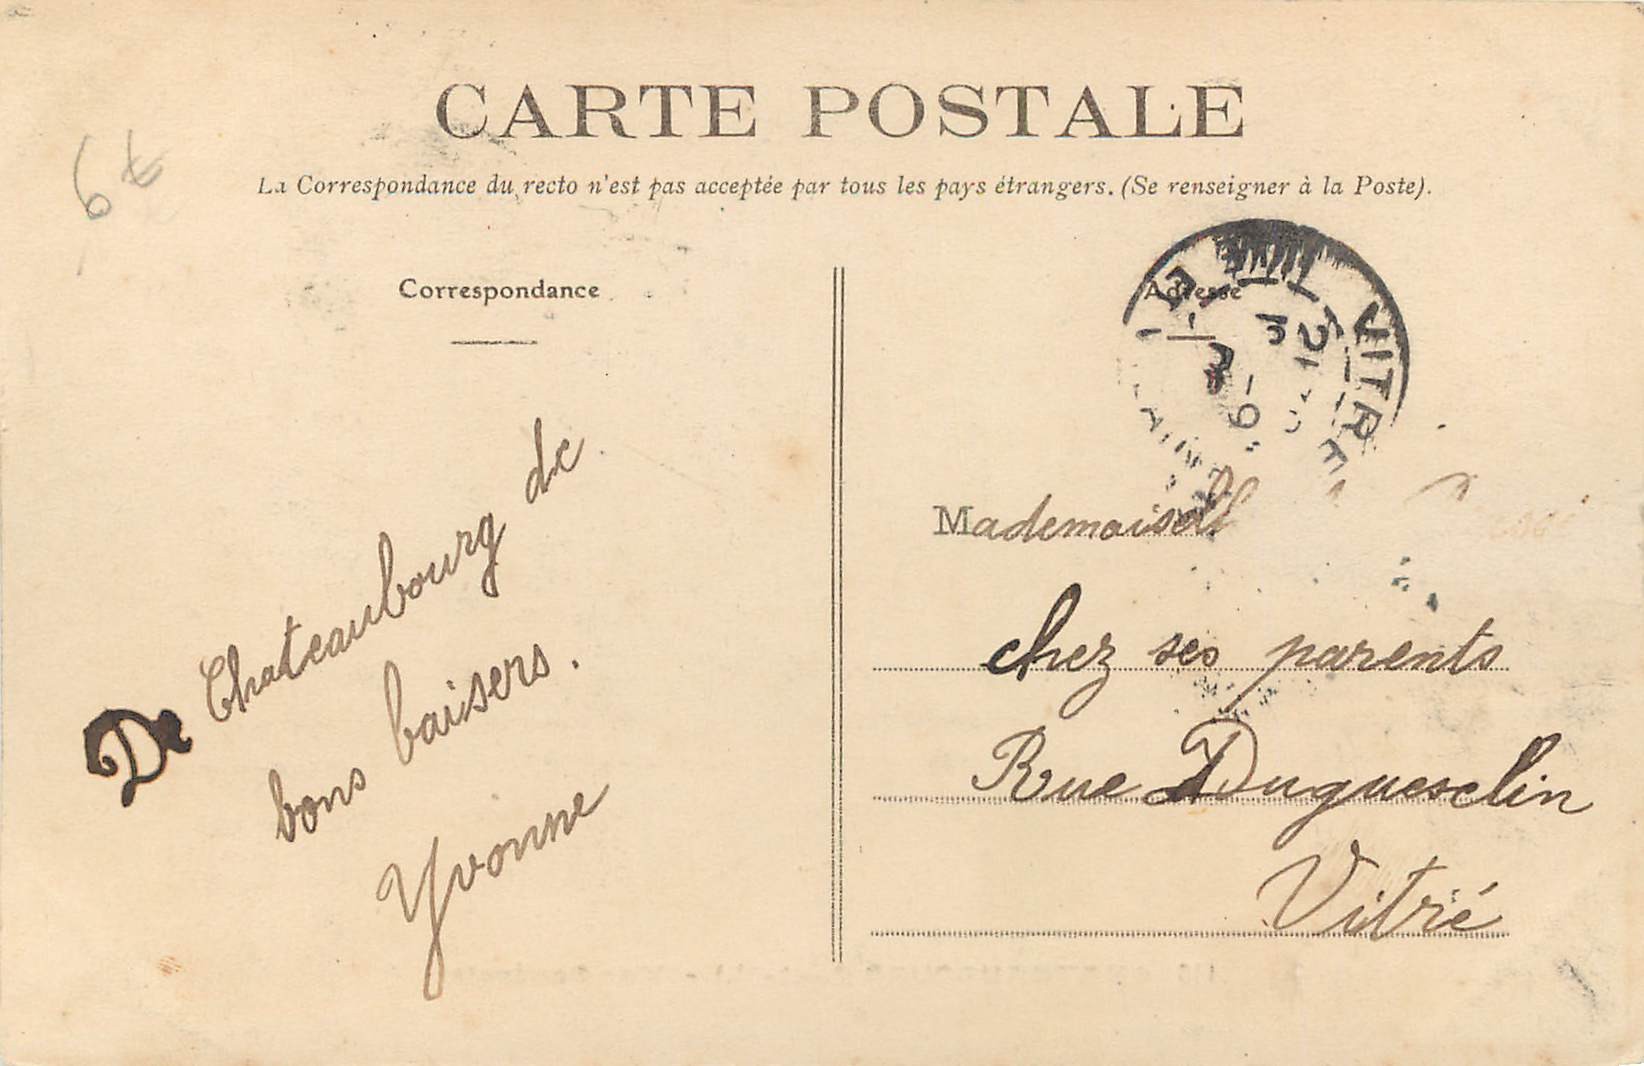 CARTE POSTALE
La Correspondance du recto n'est pas acceptée par tous les pays étrangers. (Se renseigner à la Poste).
Correspondance
De Chateaubourg de
bons baisers.
Yvonne
Adresse
VITRE
Mademoisell
chez ses parents
Rue Duguesclin
Vitré